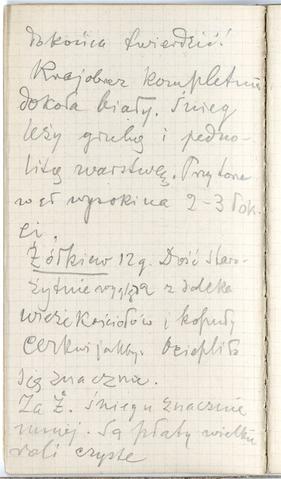 do końca twierdzić!
Krajobraz kompletnie
dokoła biały. Śnieg
leży grubą i jedno-
litą warstwą. Przytem
wał wysoki na 2-3 łok-
ci.
Żółkiew 12 g. Dość staro-
żytnie wygląda z daleka
wieże kościołów i kopuły
cerkwi jakby. Ociepliło
się znacznie.
Za Ż. śniegu znacznie
mniej. Są płaty wielku
roli czyste